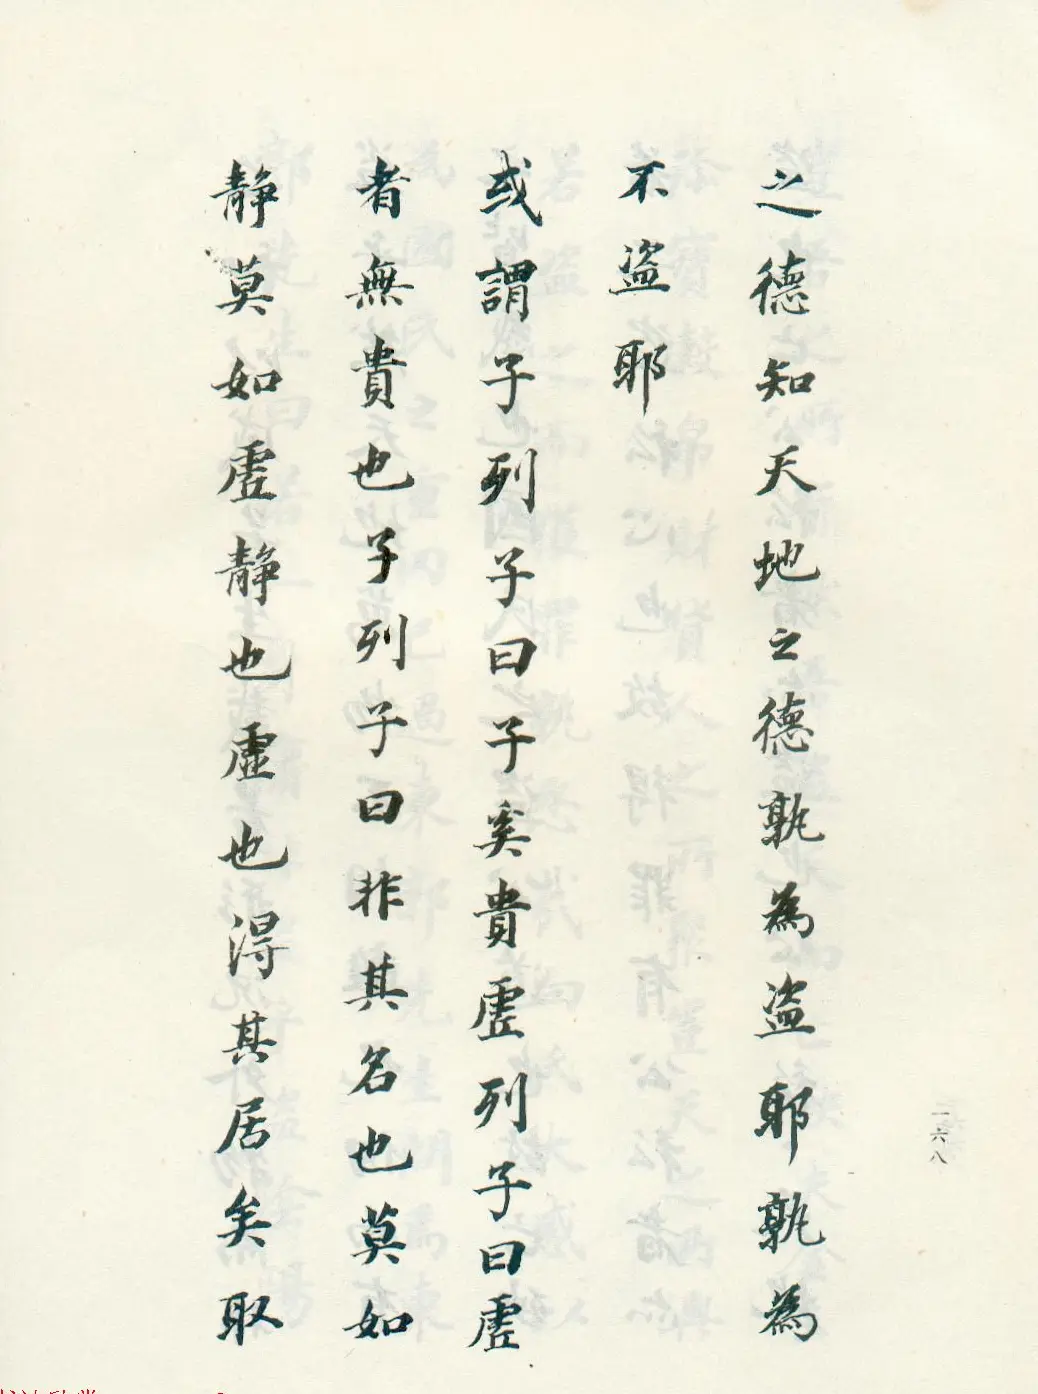 之德知天地之德孰為盗耶孰為
不盗耶
或謂子列子曰子奚貴虛列子曰虛
者無貴也子列子曰非其名也莫如
静莫如虛静也虛也淂其居矣取
一六八